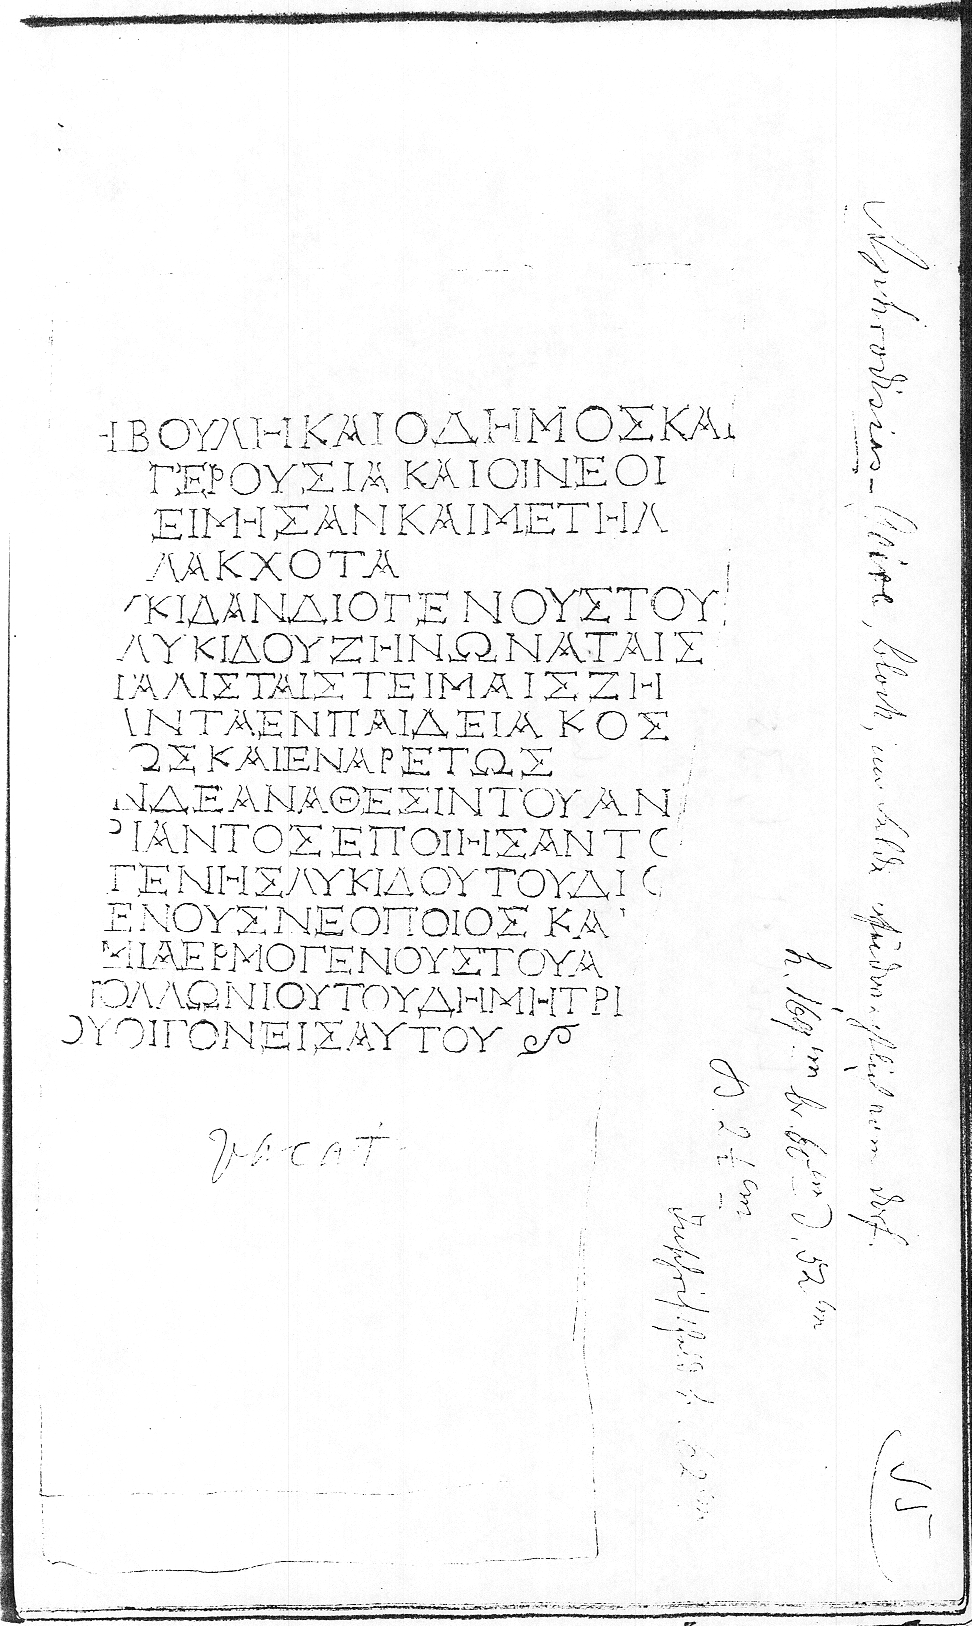 ΗΒΟΥΛΗΚΑΙΟΔΗΜΟΣΚΑΙ
ΓΕΡΟΥΣΙΑΚΑΙΟΙΝΕΟΙ
ΕΙΜΗΣΑΝΚΑΙΜΕΤΗΛ
ΛΑΚΧΟΤΑ
ΥΚΙΔΑΝΔΙΟΓΕΝΟΥΣΤΟΥ
ΛΥΚΙΔΟΥΖΗΝΩΝΑΤΑΙΣ
ΙΑΛΙΣΤΑΙΣΤΕΙΜΑΙΣΖΗ
ΝΤΑΕΝΠΑΙΔΕΙΑΚΟΣ
ΩΣΚΑΙΕΝΑΡΕΤΩΣ
ΝΔΕΑΝΑΘΕΣΙΝΤΟΥΑΝ
ΡΙΑΝΤΟΣΕΠΟΙΗΣΑΝΤΟ
ΓΕΝΗΣΛΥΚΙΔΟΥΤΟΥΔΙΟ
ΕΝΟΥΣΝΕΟΠΟΙΟΣΚΑΙ
ΜΙΑΕΡΜΟΓΕΝΟΥΣΤΟΥΑ
ΠΟΛΛΩΝΙΟΥΤΟΥΔΗΜΗΤΡΙ
ΟΥΟΙΓΟΝΕΙΣΑΥΤΟΥ
vacat
Aphrodisias
h. 169 cm br. 60 cm d. 52 cm
B. 2½ cm
55